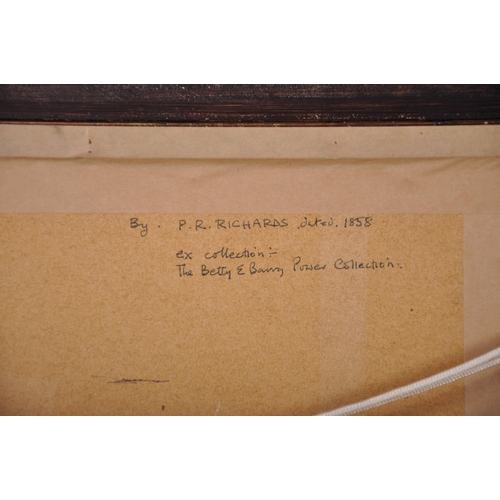 By. P.R. RICHARDS dated. 1858
ex collection:-
The Betty & Barry Power Collection:.